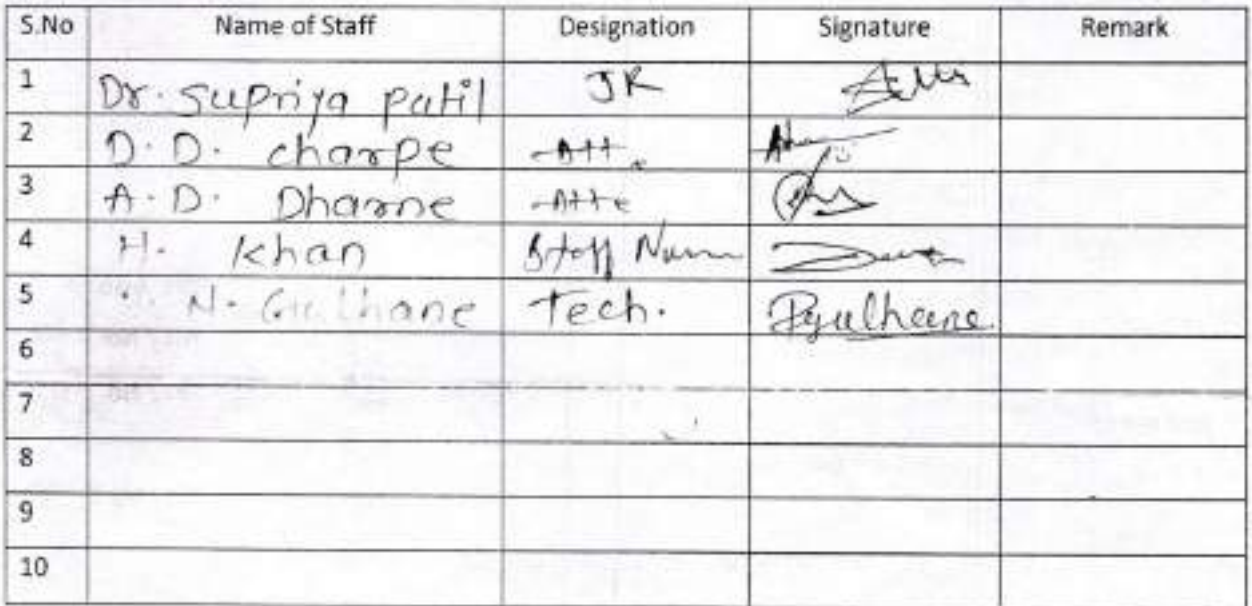 S.No Name of Staff Designation Signature Remark
1 Dr. Supriya Patil JR
2 D. D. charpe Att.
3 A. D. Dharne Atte
4 H. Khan Staff Nurs
5 N. Gulhane Tech. Pgulhane
6
7
8
9
10